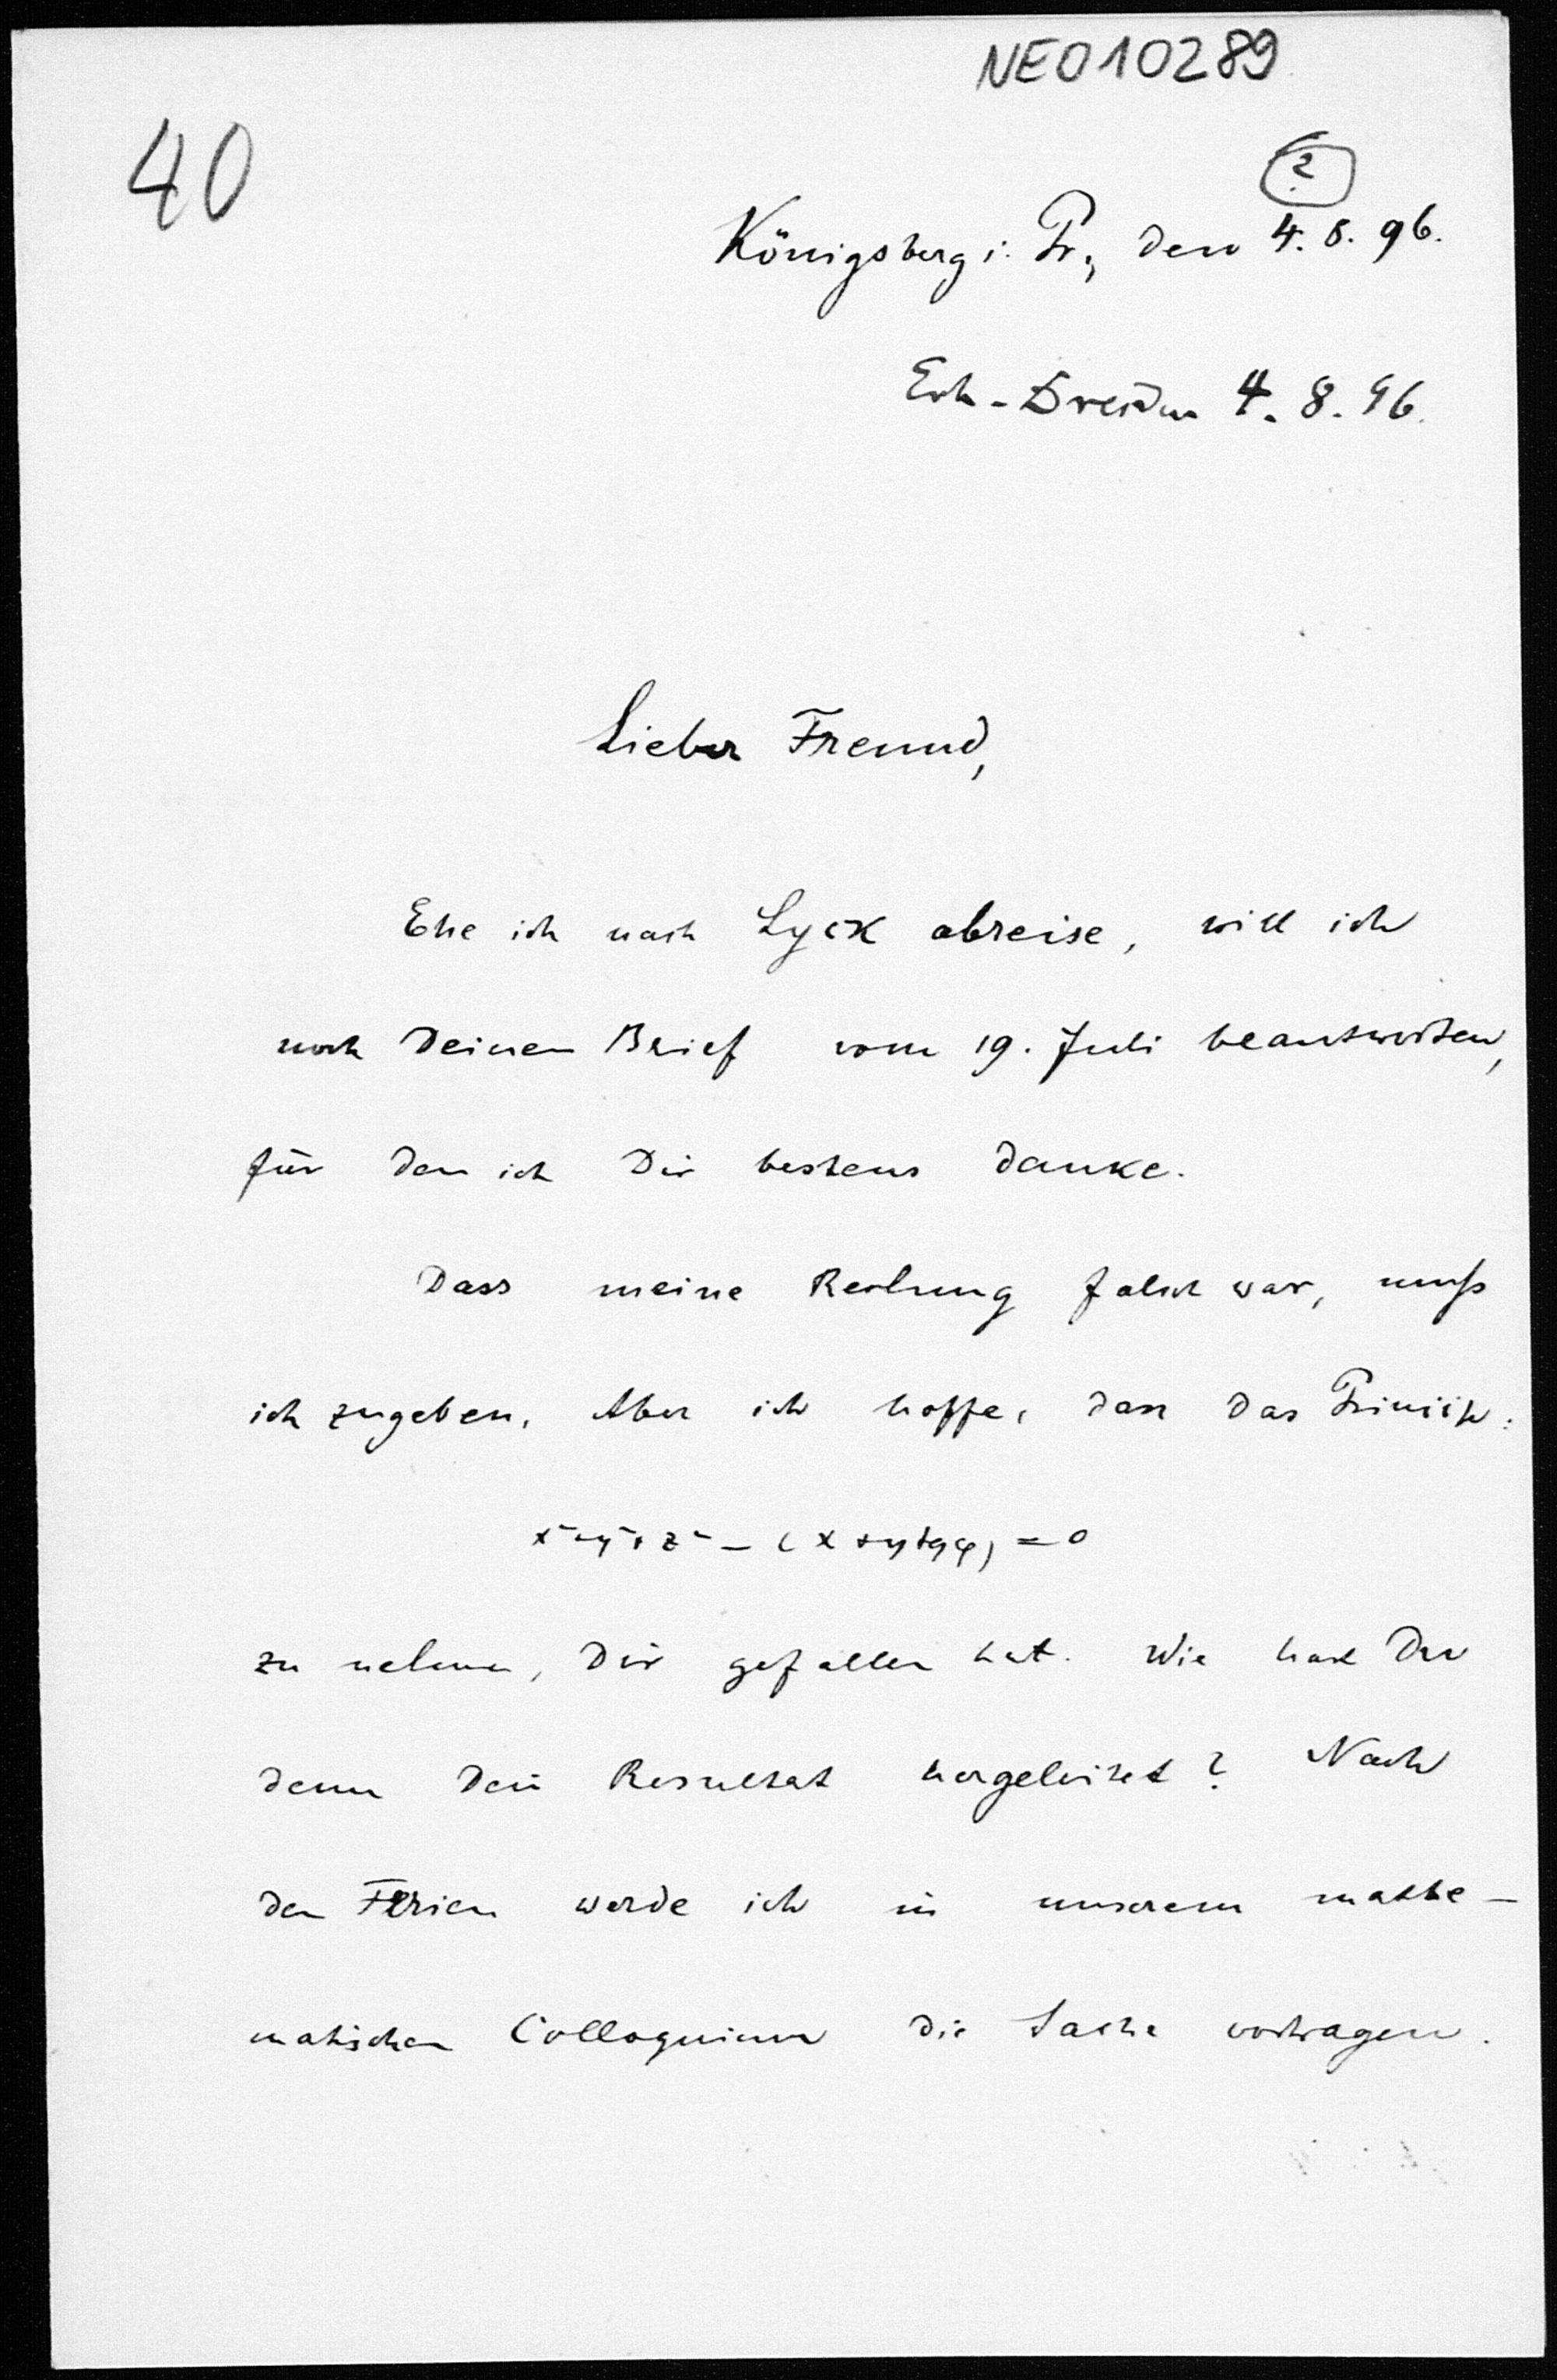 NE010289
40
?
Königsberg i. Pr., den 4. 8. 96.
4. 8. 96.
Lieber Freund,
Ehe ich nach Lyck abreise, will ich
noch Deinen Brief vom 19. Juli beantworten,
für den ich Dir bestens danke.
Dass meine Rechnung falsch war, muß
ich zugeben. Aber ich hoffe, dass das Princip:
zu nehmen, Dir gefallen hat. Wie hast Du
denn Dein Resultat hergeleitet? Nach
den Ferien werde ich in unserem mathe-
matischen Colloquium die Sache vortragen.